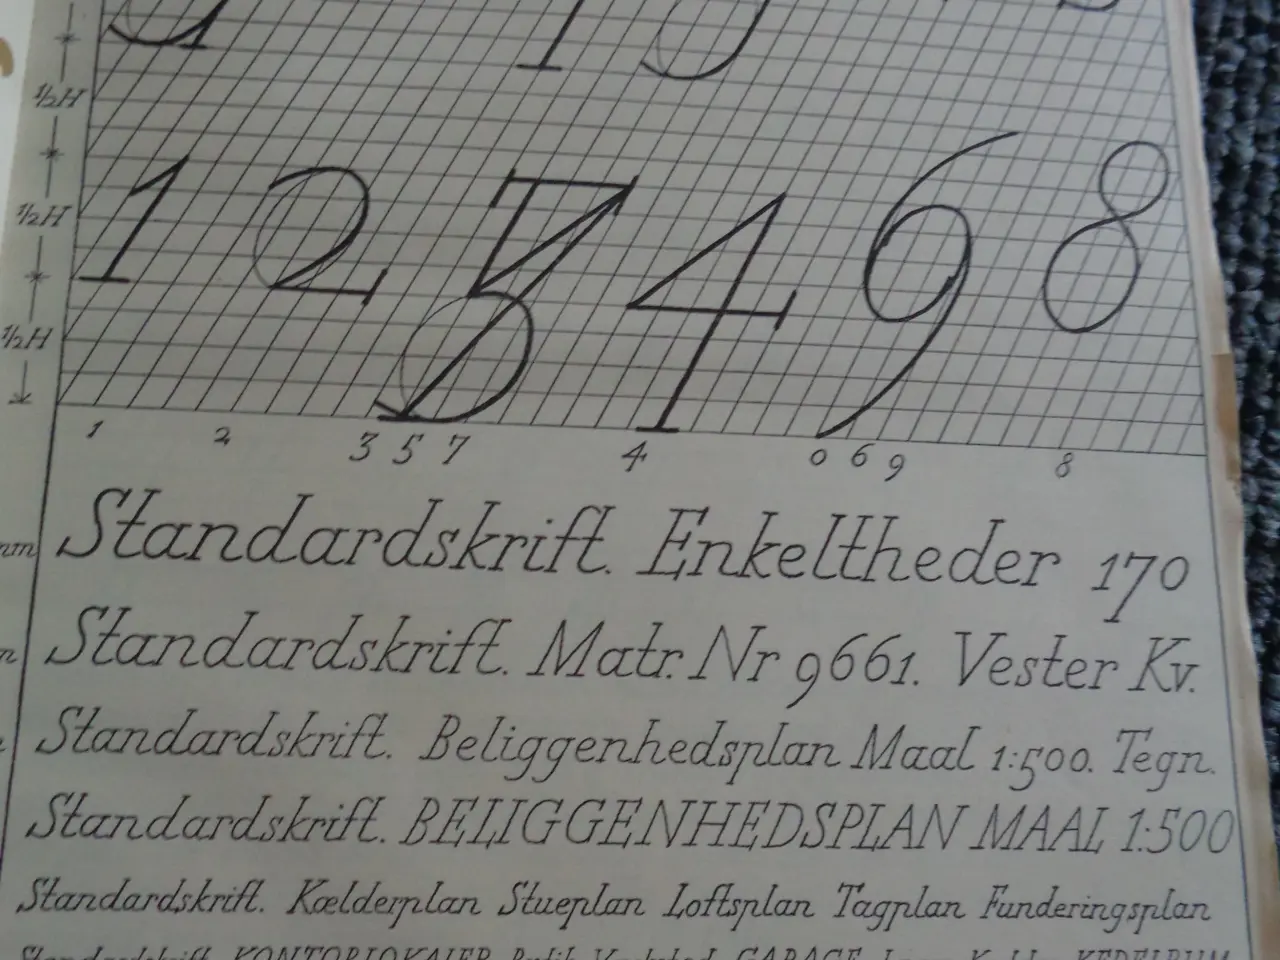 ½H
1 2 4 8
½H
½H
1 2 3 5 7 4 0 6 9 8
mm Standardskrift. Enkeltheder 170
Standardskrift. Matr. Nr 9661. Vester Kv.
Standardskrift. Beliggenhedsplan Maal 1:500. Tegn.
Standardskrift. BELIGGENHEDSPLAN MAAL 1:500
Standardskrift. Kælderplan Stueplan Loftsplan Tagplan Funderingsplan
Standardskrift. KONTORLOKALER Butik Værksted GARAGE KEDELRUM